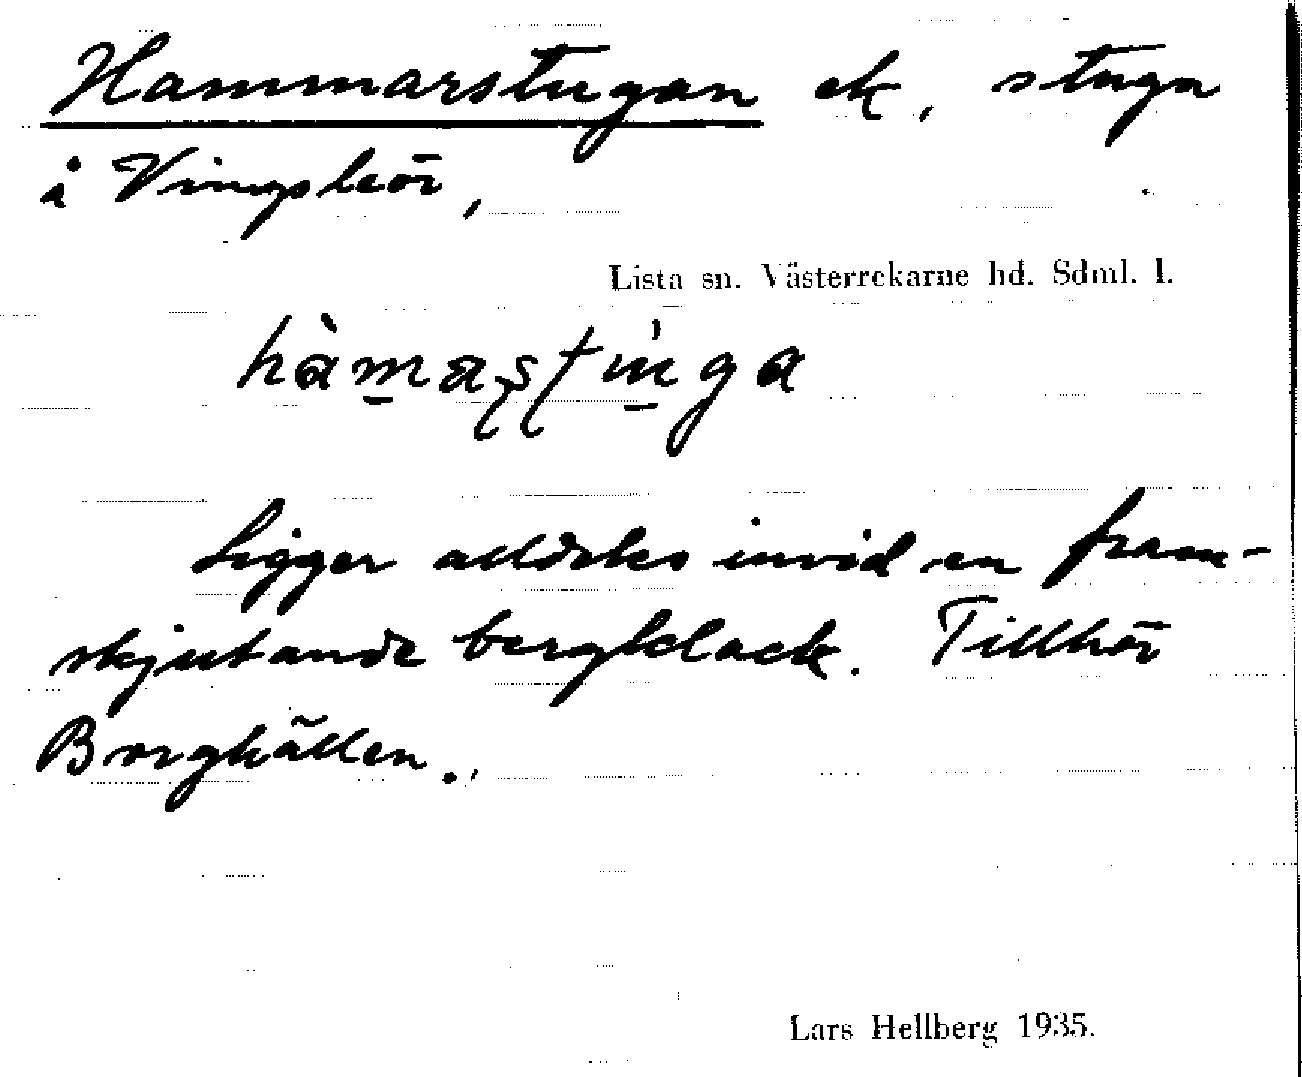 Hammarstugan ek, stuga
å Vingsleör,
Lista sn. Västerrekarne hd. Sdml. l.
Ligger alldeles invid en fram-
skjutande bergklack. Tillhör
Borghällen.
Lars Hellberg 1935.